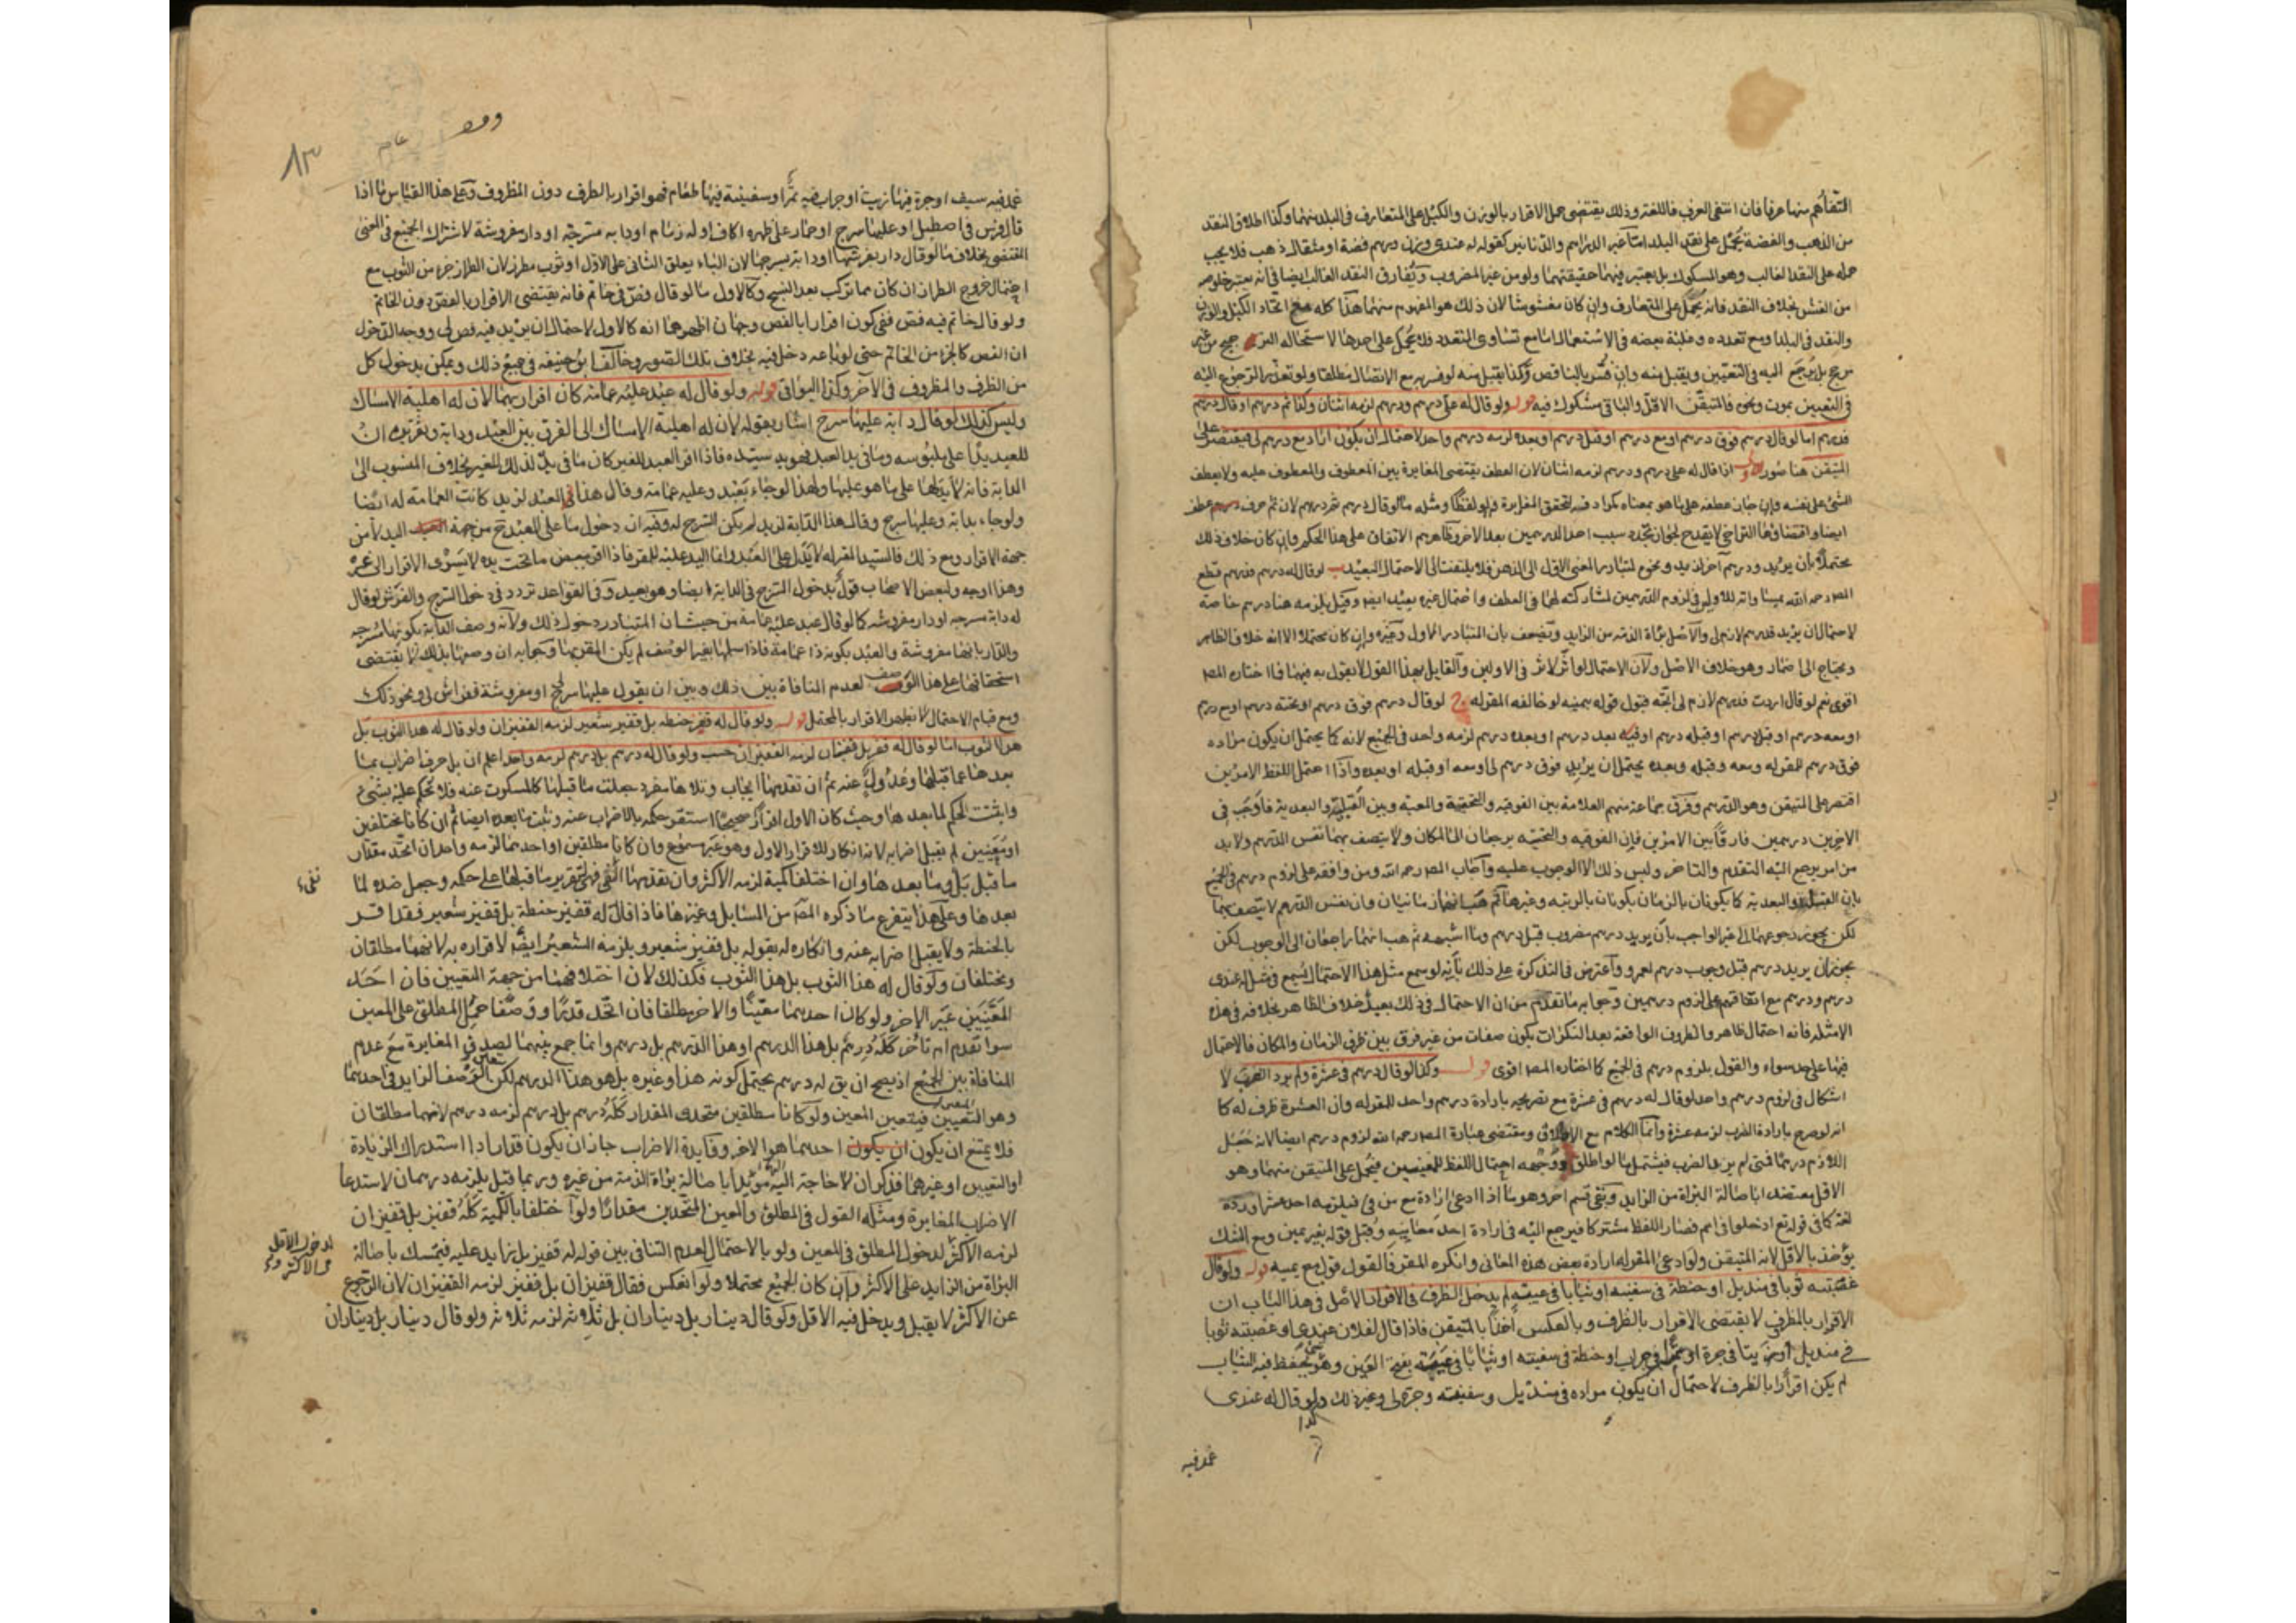 التفاهم منها عرفا فان انتفى العرف فاللغة وذلك يقتضى حمل الاقرار بالوزن والكيل على المتعارف فى البلد بينهما وكذا اطلاق النقد
من الذهب والفضة يحمل على نقد البلد اما غير الدراهم والدنانير كقوله له عندى وزن درهم فضة او مثقال ذهب فلا يجب
حمله على النقد الغالب وهو المسكوك بل يعتبر فيهما حقيقتهما ولو من غير المضروب ويفارق النقد الغالب ايضا فى انه يعتبر خلوصه
من الغش بخلاف النقد فانه يحمل على المتعارف وان كان مغشوشا لان ذلك هو المفهوم منهما هذا كله مع اتحاد الكيل والوزن
والنقد فى البلد او مع تعدده وغلبة بعضه فى الاستعمال اما مع تساوى المتعدد فلا يحمل على احدها لاستحالة الترجيح من غير
مرجح بل يرجع اليه فى التعيين ويقبل منه وان فسر بالناقص وكذا يقبل منه لو فسره مع الاتصال مطلقا ولو تعذر الرجوع اليه
فى التعيين بموت ونحوه فالمتيقن الاقل والباقى مشكوك فيه قوله ولو قال له على درهم ودرهم لزمه اثنان وكذا ثم درهم او قال درهم
فدرهم اما لو قال درهم فوق درهم او مع درهم او قبل درهم او بعده لزمه درهم واحد لاحتمال ان يكون اراد مع درهم لى فيقتصر على
المتيقن هنا صور اذا قال له على درهم ودرهم لزمه اثنان لان العطف يقتضى المغايرة بين المعطوف والمعطوف عليه ولا يعطف
الشئ على نفسه وان جاز عطفه على ما هو بمعناه كمرادفه لتحقق المغايرة ولو لفظا ومثله ما لو قال درهم ثم درهم لان ثم حرف عطف
ايضا واقتضاؤها التراخى لا يقدح لجواز تجدد سبب احد الدرهمين بعد الاخر وظاهرهم الاتفاق على هذا الحكم وان كان خلاف ذلك
محتملا بان يريد ودرهم آخر لزيد ونحوه لتبادر المعنى الاول الى الذهن فلا يلتفت الى الاحتمال البعيد ب لو قال له درهم فدرهم قطع
المص رحمه الله بمساواته للاولى فى لزوم الدرهمين لمشاركته لهما فى العطف واحتمال غيره بعيد ايضا وقيل يلزمه هنا درهم خاصة
لاحتمال ان يريد فدرهم لازم لى والاصل براءة الذمة من الزايد ويضعف بان المتبادر الاول وغيره وان كان محتملا الا انه خلاف الظاهر
ويحتاج الى اضمار وهو خلاف الاصل ولان الاحتمال لو اثر لاثر فى الاولين والقايل بهذا القول لا يقول به فيهما فما اختاره المص
اقوى نعم لو قال اردت فدرهم لازم لى اتجه قبول قوله بيمينه لو خالفه المقر له ج لو قال درهم فوق درهم او تحته درهم او مع درهم
او معه درهم او قبل درهم او قبله درهم او بعد درهم او بعده درهم لزمه واحد فى الجميع لانه كما يحتمل ان يكون مراده
فوق درهم للمقر له ومعه وقبله وبعده يحتمل ان يريد فوق درهم لى او معه او قبله او بعده واذا احتمل اللفظ الامرين
اقتصر على المتيقن وهو الدرهم وفرق جماعة منهم العلامة بين الفوقية والتحتية والمعية وبين القبلية والبعدية فاوجب فى
الاخيرين درهمين فارقا بين الامرين فان الفوقية والتحتية يرجعان الى المكان ولا يتصف بهما نفس الدرهم ولا بد
من امر يرجع اليه التقدم والتاخر وليس ذلك الا الوجوب عليه واجاب المص رحمه الله ومن وافقه على لزوم درهم فى الجميع
بان القبلية والبعدية كما يكونان بالزمان يكونان بالرتبة وغيرها ثم هب انهما زمانيان وان نفس الدرهم لا يتصف بهما
لكن يجوز رجوعهما الى غير الواجب بان يريد درهم مضروب قبل درهم وما اشبهه ثم هب انهما راجعان الى الوجوب لكن
يجوز ان يريد درهم قبل وجوب درهم لعمرو واعترض فى التذكرة على ذلك بانه لو سمع مثل هذا الاحتمال لسمع فى مثل له عندى
درهم ودرهم مع اتفاقهم على لزوم درهمين وجوابه ما تقدم من ان الاحتمال فى ذلك بعيد خلاف الظاهر بخلافه فى هذه
الامثلة فانه احتمال ظاهر والظروف الواقعة بعد النكرات يكون صفات من غير فرق بين ظرفى الزمان والمكان فالاحتمال
فيها على حد سواء والقول بلزوم درهم فى الجميع كما اختاره المص اقوى قوله وكذا لو قال درهم فى عشرة ولم يرد الضرب لا
اشكال فى لزوم درهم واحد لو قال له درهم فى عشرة مع تصريحه بارادة درهم واحد للمقر له وان العشرة ظرف له كما
انه لو صرح بارادة الضرب لزمه عشرة وانما الكلام مع الاطلاق ومقتضى عبارة المص رحمه الله لزوم درهم ايضا لانه جعل
اللازم درهما متى لم يرد الضرب فيشتمل ما لو اطلق ووجهه احتمال اللفظ للمعنيين فيحمل على المتيقن منهما وهو
الاقل معتضدا باصالة البراءة من الزايد وبقى قسم آخر وهو ما اذا ادعى ارادة مع من فى فيلزمه احد عشر وروده
لغة كما فى قوله تع ادخلوا فى امم فصار اللفظ مشتركا فيرجع اليه فى ارادة احد معانيه وقبل قوله بغير يمين ومع الشك
يؤخذ بالاقل لانه المتيقن ولو ادعى المقر له ارادة بعض هذه المعانى وانكره المقر فالقول قوله مع يمينه قوله ولو قال
غصبته ثوبا فى منديل او حنطة فى سفينة او ثيابا فى عيبة لم يدخل الظرف فى الاقرار الاصل فى هذا الباب ان
الاقرار بالمظروف لا يقتضى الاقرار بالظرف وبالعكس اخذا بالمتيقن فاذا قال لفلان عندى او غصبته ثوبا
فى منديل او زيتا فى جرة او تمرا فى جراب او حنطة فى سفينة او ثيابا فى عيبة بفتح العين وهى ما يحفظ فيه الثياب
لم يكن اقرارا بالظرف لاحتمال ان يكون مراده فى منديل وسفينة وجرة لى وغير ذلك ولو قال له عندى
غمد فيه
٨٣
غمد فيه سيف او جرة فيها زيت او جراب فيه تمر او سفينة فيها طعام فهو اقرار بالظرف دون المظروف وعلى هذا القياس ما اذا
قال فرس فى اصطبل او عليها سرج او حمار على ظهره اكاف او له زمام او دابة مسرجة او دار مفروشة لاشتراك الجميع فى المعنى
المقتضى بخلاف ما لو قال دار بفرشها او دابة بسرجها لان الباء يعلق الثانى على الاول او ثوب مطرز لان الطراز جزء من الثوب مع
احتمال خروج الطراز ان كان مما تركب بعد النسج وكالاول ما لو قال فص فى خاتم فانه يقتضى الاقرار بالفص دون الخاتم
ولو قال خاتم فيه فص ففى كون اقرارا بالفص وجهان اظهرهما انه كالاول لاحتمال ان يريد فيه فص لى ووجه الدخول
ان الفص كالجزء من الخاتم حتى لو باعه دخل فيه بخلاف تلك الصور وخالف ابو حنيفة فى جميع ذلك ويمكن بدخول كل
من الظرف والمظروف فى الآخر وكذا البواقى قوله ولو قال له عبد عليه عمامة كان اقرارا بهما لان له اهلية الامساك
وليس كذلك لو قال دابة عليها سرج اشار بقوله لان له اهلية الامساك الى الفرق بين العبد ودابة وتقريره ان
للعبد يدا على ملبوسه وما فى يد العبد فهو يد سيده فاذا اقر بالعبد للغير كان ما فى يده لذلك الغير بخلاف المنسوب الى
الدابة فانه لا يد لها على ما هو عليها ولهذا لو جاء بعبد وعليه عمامة وقال هذا العبد لزيد كانت العمامة له ايضا
ولو جاء بدابة وعليها سرج وقال هذا الدابة لزيد لم يكن السرج له وفيه ان دخول ما على العبد ح من جهة اليد لا من
جهة الاقرار ومع ذلك فالسيد المقر له لا يد له على العبد وانما اليد عليه للمقر فاذا اقر ببعض ما تحت يده لا يسرى الاقرار الى غيره
وهذا اوجه ولبعض الاصحاب قول بدخول السرج فى الدابة ايضا وهو بعيد وفى القواعد تردد فى دخول السرج والفرش لو قال
له دابة مسرجة او دار مفروشة كما لو قال عبد عليه عمامة من حيث ان المتبادر دخول ذلك ولانه وصف الدابة بكونها مسرجة
والدار بانها مفروشة والعبد بكونه ذا عمامة فاذا سلمها بغير الوصف لم يكن المقر بها وجوابه ان وصفها بذلك لا يقتضى
استحقاقها على هذا الوصف لعدم المنافاة بين ذلك وبين ان يقول عليها سرج لى او مفروشة بفراش لى ونحو ذلك
ومع قيام الاحتمال لا يظهر الاقرار بالمحتمل قوله ولو قال له قفيز حنطة بل قفيز شعير لزمه القفيزان ولو قال له هذا الثوب بل
هذا الثوب اما لو قال له قفيز بل قفيزان لزمه القفيزان حسب ولو قال له درهم بل درهم لزمه واحد اعلم ان بل حرف اضراب بما
بعدها عما قبلها وعدول عنه ثم ان تقدمها ايجاب وتلاها مفرد جعلت ما قبلها كالمسكوت عنه فلا يحكم عليه بشئ
واثبتت الحكم لما بعدها وحيث كان الاول اقرارا صحيحا استقر حكمه بالاضراب عنه وثبت ما بعده ايضا ثم ان كانا مختلفين
او معينين لم يقبل اضرابه لانه انكار للاقرار الاول وهو غير مسموع وان كانا مطلقين او احدهما لزمه واحد ان اتحد مقدار
ما قبل بل وما بعدها وان اختلفا كمية لزمه الاكثر وان تقدمها النفى فهى لتقرير ما قبلها على حكمه وجعل ضده لما
نفى
بعدها وعلى هذا يتفرع ما ذكره المص من المسايل وغيرها فاذا قال له قفيز حنطة بل قفيز شعير فقد اقر
بالحنطة ولا يقبل اضرابه عنه وانكاره له بقوله بل قفيز شعير ويلزمه الشعير ايضا لاقراره به لانهما مطلقان
ومختلفان ولو قال له هذا الثوب بل هذا الثوب فكذلك لان اختلافهما من جهة التعيين فان احد
المعينين غير الاخر ولو كان احدهما معينا والاخر مطلقا فان اتحد قدرا ووصفا حمل المطلق على المعين
سواء تقدم ام تاخر كله درهم بل هذا الدرهم او هذا الدرهم بل درهم وانما جمع بينهما لصدق المغايرة مع عدم
المنافاة بين الجميع اذ يصح ان يق له درهم يحتمل كونه هذا وغيره بل هو هذا الدرهم لكن الوصف الزايد فى احدهما
وهو التعيين فيتعين المعين ولو كانا مطلقين متحدى المقدار كله درهم بل درهم لزمه درهم لانهما مطلقان
فلا يمتنع ان يكون احدهما هو الاخر وفايدة الاضراب جاز ان يكون قد اراد استدراك الزيادة
او التعيين او غيرهما فذكر ان لا حاجة اليه مؤيدا باصالة براءة الذمة من غيره وربما قيل يلزمه درهمان لاستدعاء
الاضراب المغايرة ومثله القول فى المطلق والمعين المتحدين مقدارا ولو اختلفا بالكمية كله قفيز بل قفيزان
لزمه الاكثر لدخول المطلق فى المعين ولو بالاحتمال لعدم التنافى بين قوله له قفيز بل زايد عليه فيتمسك باصالة
لدخول الاقل
فى الاكثر
البراءة من الزايد على الاكثر وان كان الجميع محتملا ولو انعكس فقال قفيزان بل قفيز لزمه القفيزان لان الرجوع
عن الاكثر لا يقبل ويدخل فيه الاقل ولو قال دينار بل ديناران بل ثلاثة لزمه ثلاثة ولو قال دينار بل ديناران